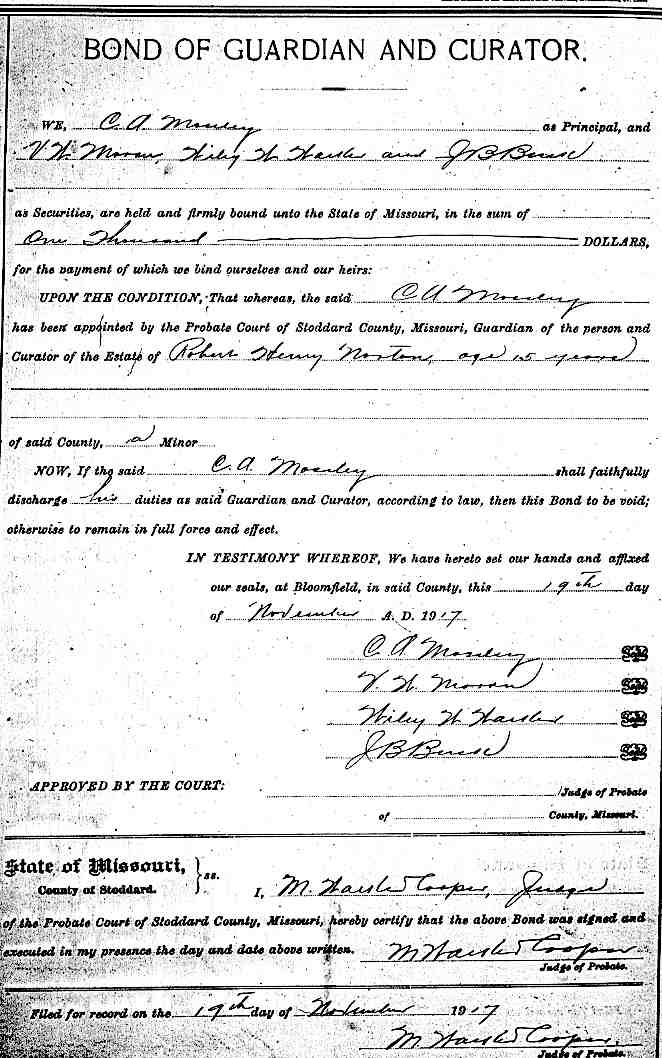 BOND OF GUARDIAN AND CURATOR.
WE, C. A. Mosley as Principal, and
V. H. Moran, Wiley H. and J B
as Securities, are held and firmly bound unto the State of Missouri, in the sum of
One Thousand DOLLARS,
for the payment of which we bind ourselves and our heirs:
UPON THE CONDITION, That whereas, the said C A Mosley
has been appointed by the Probate Court of Stoddard County, Missouri, Guardian of the person and
Curator of the Estate of Robert Henry Norton, age 15 years
of said County, a Minor
NOW, If the said C. A. Mosley shall faithfully
discharge his duties as said Guardian and Curator, according to law, then this Bond to be void;
otherwise to remain in full force and effect.
IN TESTIMONY WHEREOF, We have hereto set our hands and affixed
our seals, at Bloomfield, in said County, this 19th day
of November A. D. 1917
C. A. Mosley Seal
V. H. Moran Seal
Wiley H. Seal
J B Seal
APPROVED BY THE COURT:
Judge of Probate
of County, Missouri.
State of Missouri,
County of Stoddard. } ss. I, M. Cooper, Judge
of the Probate Court of Stoddard County, Missouri, hereby certify that the above Bond was signed and
executed in my presence the day and date above written. M Cooper
Judge of Probate.
Filed for record on the 19th day of November 1917
M Cooper,
Judge of Probate.